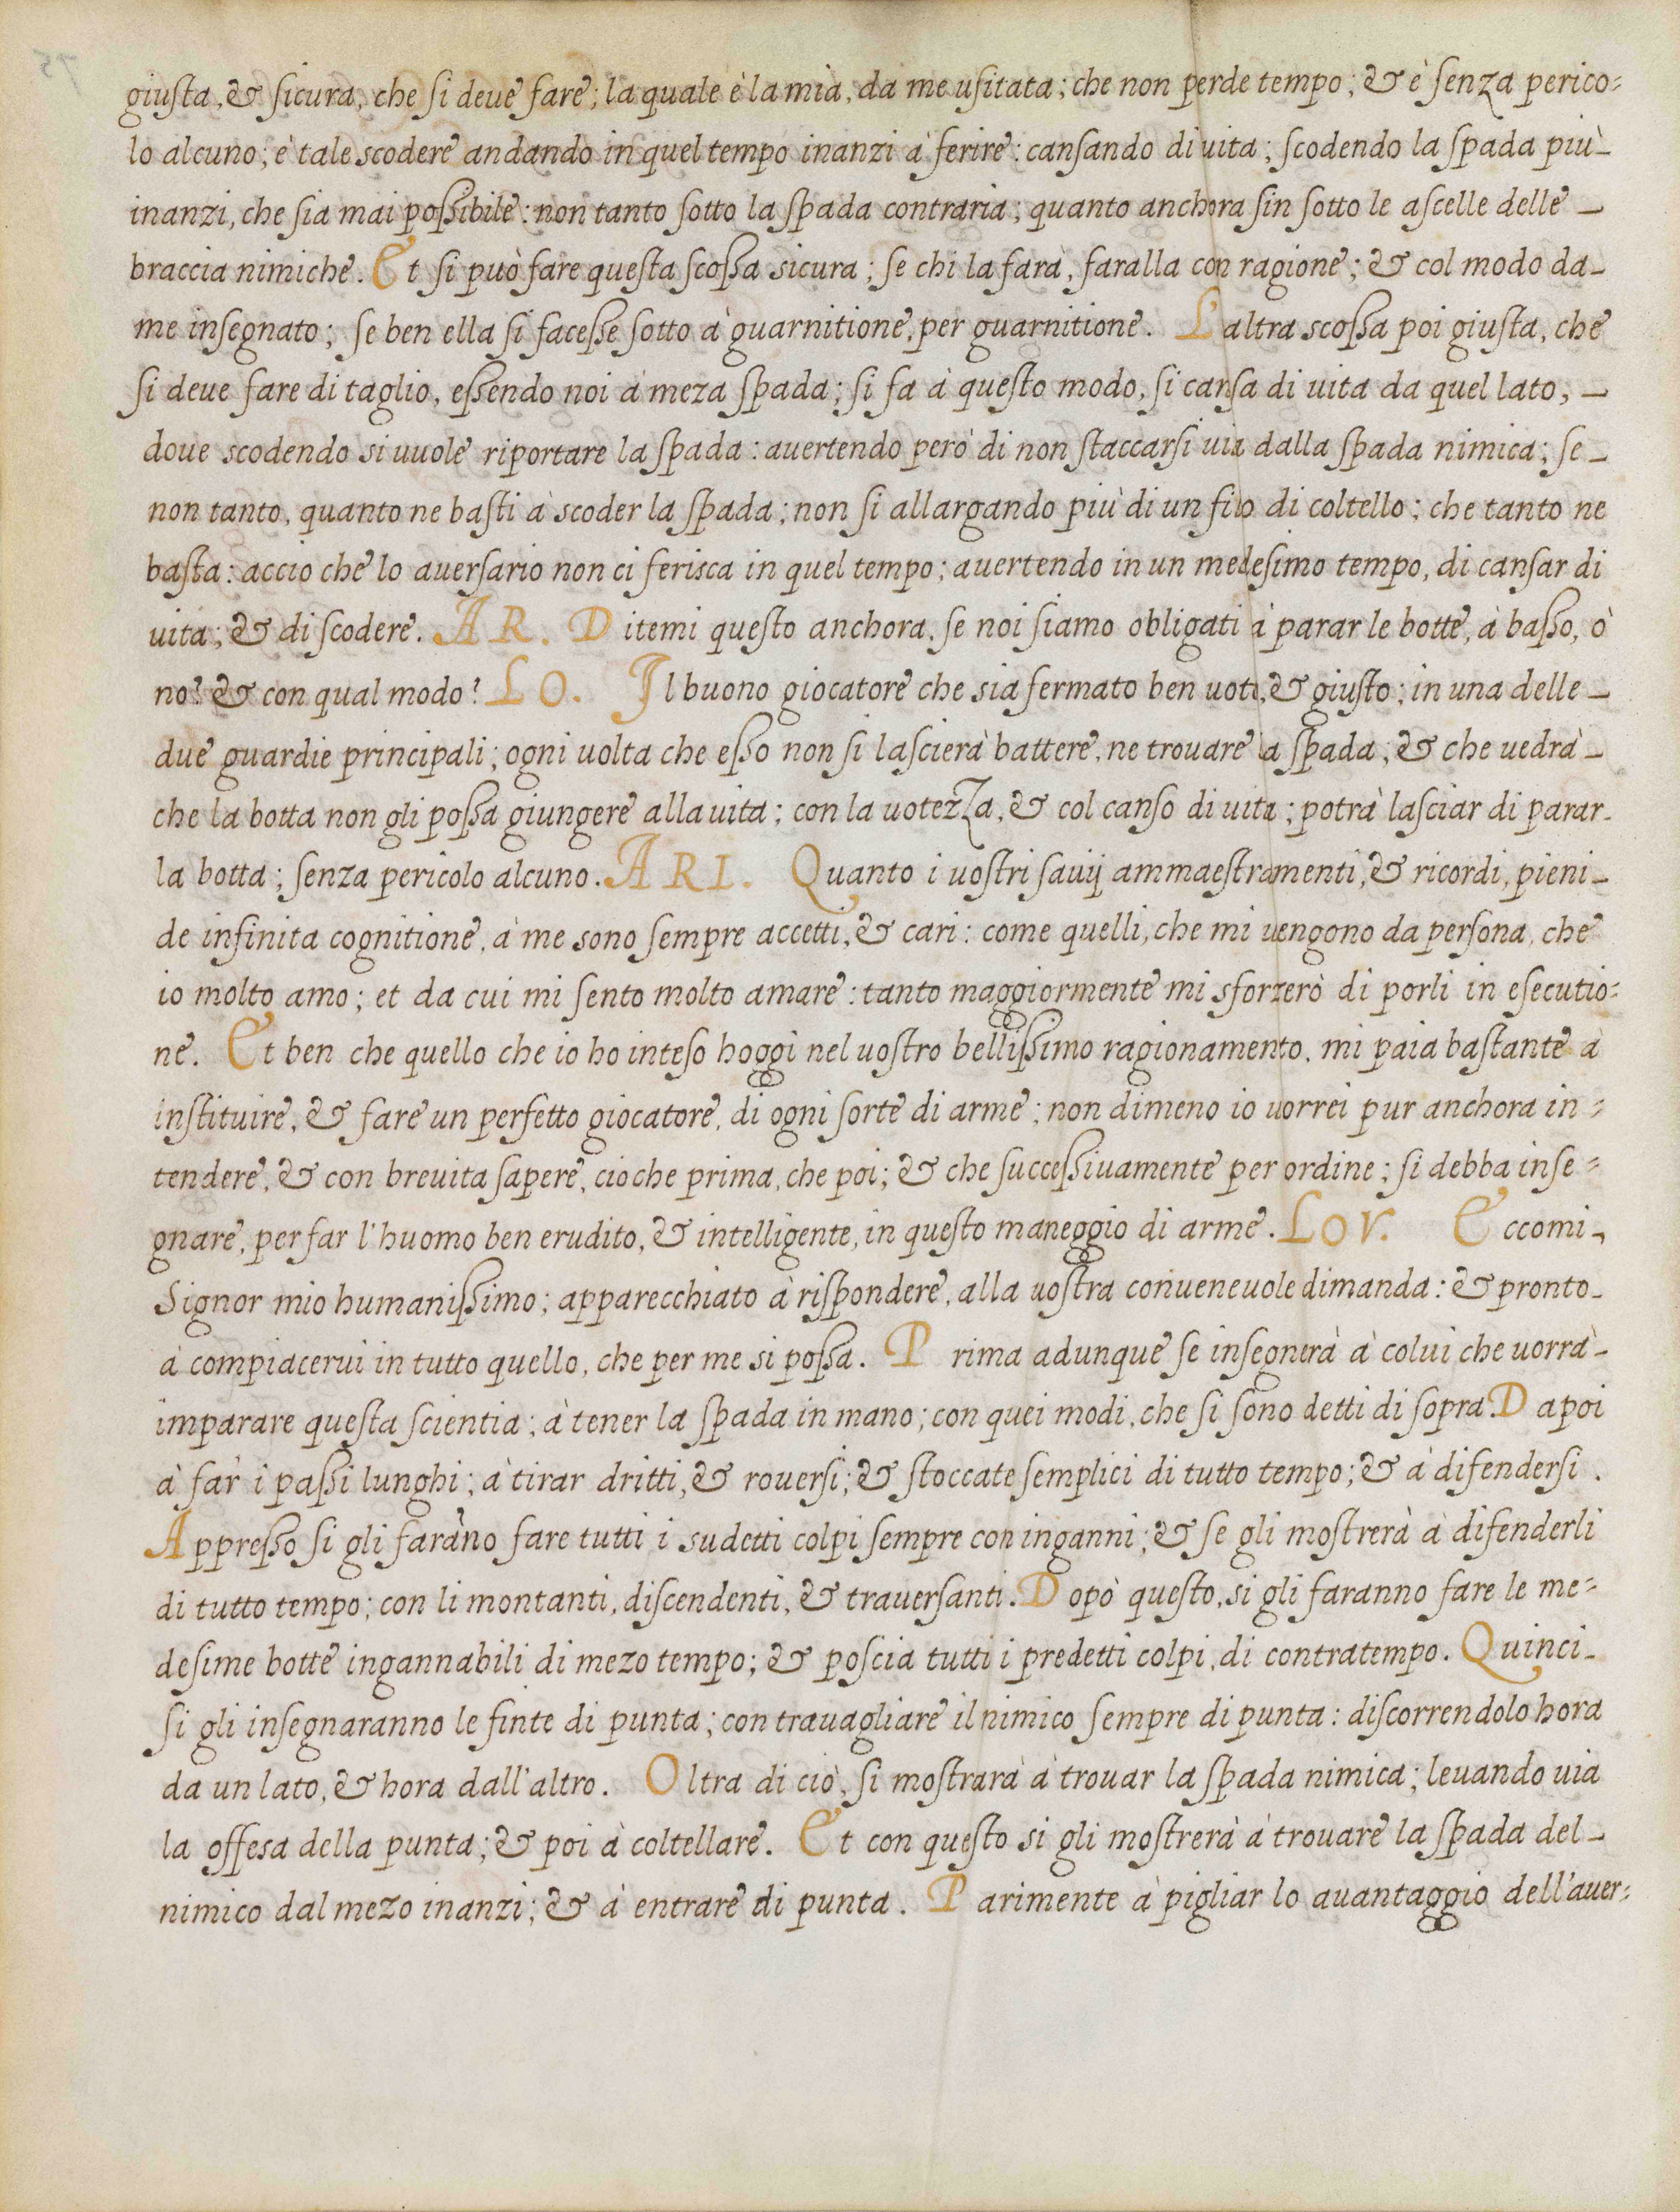 giusta, & sicura, che si deue fare; la quale è la mia, da me usitata; che non perde tempo; & è senza perico=
lo alcuno; è tale scodere andando in quel tempo inanzi à ferire: cansando di uita; scodendo la spada più_
inanzi, che sia mai possibile: non tanto sotto la spada contraria; quanto anchora sin sotto le ascelle delle _
braccia nimiche. Et si può fare questa scossa sicura; se chi la farà, faralla con ragione; & col modo da_
me insegnato; se ben ella si facesse sotto à guarnitione, per guarnitione. L'altra scossa poi giusta, che
si deue fare di taglio, essendo noi à meza spada; si fa à questo modo, si cansa di uita da quel lato, _
doue scodendo si uuole riportare la spada: auertendo però di non staccarsi uia dalla spada nimica; se_
non tanto, quanto ne basti à scoder la spada; non si allargando più di un filo di coltello; che tanto ne
basta: accio che lo auersario non ci ferisca in quel tempo; auertendo in un medesimo tempo, di cansar di
uita; & di scodere. AR. Ditemi questo anchora, se noi siamo obligati à parar le botte, à basso, ò
no? & con qual modo? LO. Il buono giocatore che sia fermato ben uoto, & giusto; in una delle _
due guardie principali; ogni uolta che esso non si lascierà battere, ne trouare la spada; & che uedrà _
che la botta non gli possa giungere alla uita; con la uotezza, & col canso di uita; potrà lasciar di parar_
la botta; senza pericolo alcuno. ARI. Quanto i uostri sauij ammaestramenti, & ricordi, pieni _
de infinita cognitione, à me sono sempre accetti, & cari: come quelli, che mi uengono da persona, che
io molto amo; et da cui mi sento molto amare: tanto maggiormente mi sforzerò di porli in esecutio=
ne. Et ben che quello che io ho inteso hoggi nel uostro bellissimo ragionamento, mi paia bastante à
instituire, & fare un perfetto giocatore, di ogni sorte di arme; non dimeno io uorrei pur anchora in=
tendere, & con breuita sapere, cio che prima, che poi; & che successiuamente per ordine; si debba inse=
gnare, per far l'huomo ben erudito, & intelligente, in questo maneggio di arme. LOV. Eccomi _
Signor mio humanissimo; apparecchiato à rispondere, alla uostra conueneuole dimanda: & pronto _
à compiacerui in tutto quello, che per me si possa. Prima adunque se insegnerà à colui che uorrà _
imparare questa scientia; à tener la spada in mano; con quei modi, che si sono detti di sopra. Dapoi
à far i passi lunghi; à tirar dritti, & rouersi; & stoccate semplici di tutto tempo; & à difendersi.
Appresso si gli farãno fare tutti i sudetti colpi sempre con inganni; & se gli mostrerà à difenderli
di tutto tempo; con li montanti, discendenti, & trauersanti. Dopò questo, si gli faranno fare le me=
desime botte ingannabili di mezo tempo; & poscia tutti i predetti colpi, di contratempo. Quinci _
si gli insegnaranno le finte di punta; con trauagliare il nimico sempre di punta: discorrendolo hora
da un lato, & hora dall'altro. Oltra di ciò, si mostrarà à trouar la spada nimica; leuando uia
la offesa della punta; & poi à coltellare. Et con questo si gli mostrerà à trouare la spada del _
nimico dal mezo inanzi; & à entrare di punta. Parimente à pigliar lo auantaggio dell'auer=